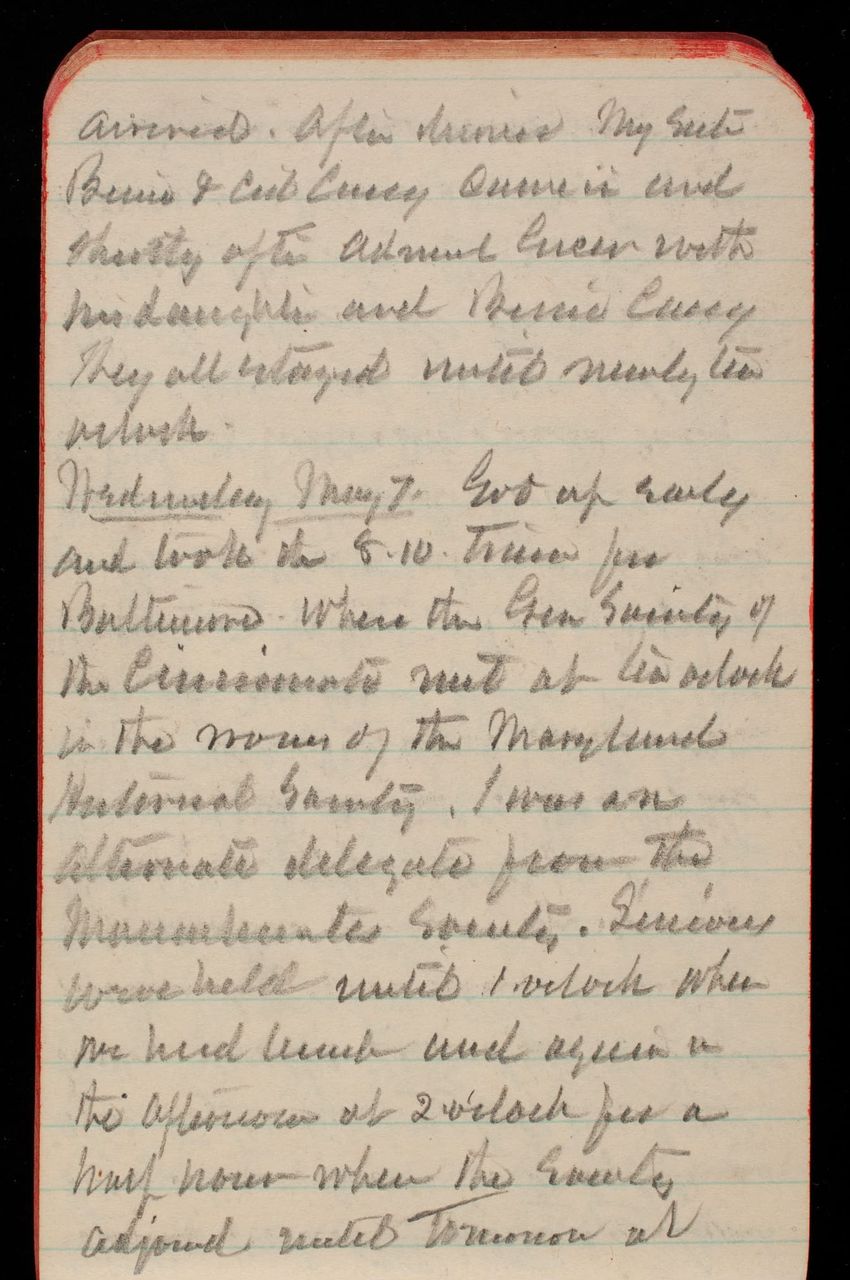 arrived. After dinner My Sister
Bessie & Col Casey came in and
shortly after Admiral Greer with
his daughter and Bessie Casey
They all stayed until nearly ten
oclock.
Wednesday May 7. Got up early
and took the 8.10. Train for
Baltimore. Where the Gen Society of
the Cincinnati met at ten oclock
in the rooms of the Maryland
Historical Society. I was an
Alternate delegate from the
Massachusetts Society. Sessions
were held until 1 oclock when
we had lunch and again in
the afternoon at 2 o'clock for a
half hour when the Society
adjourd until tomorrow at